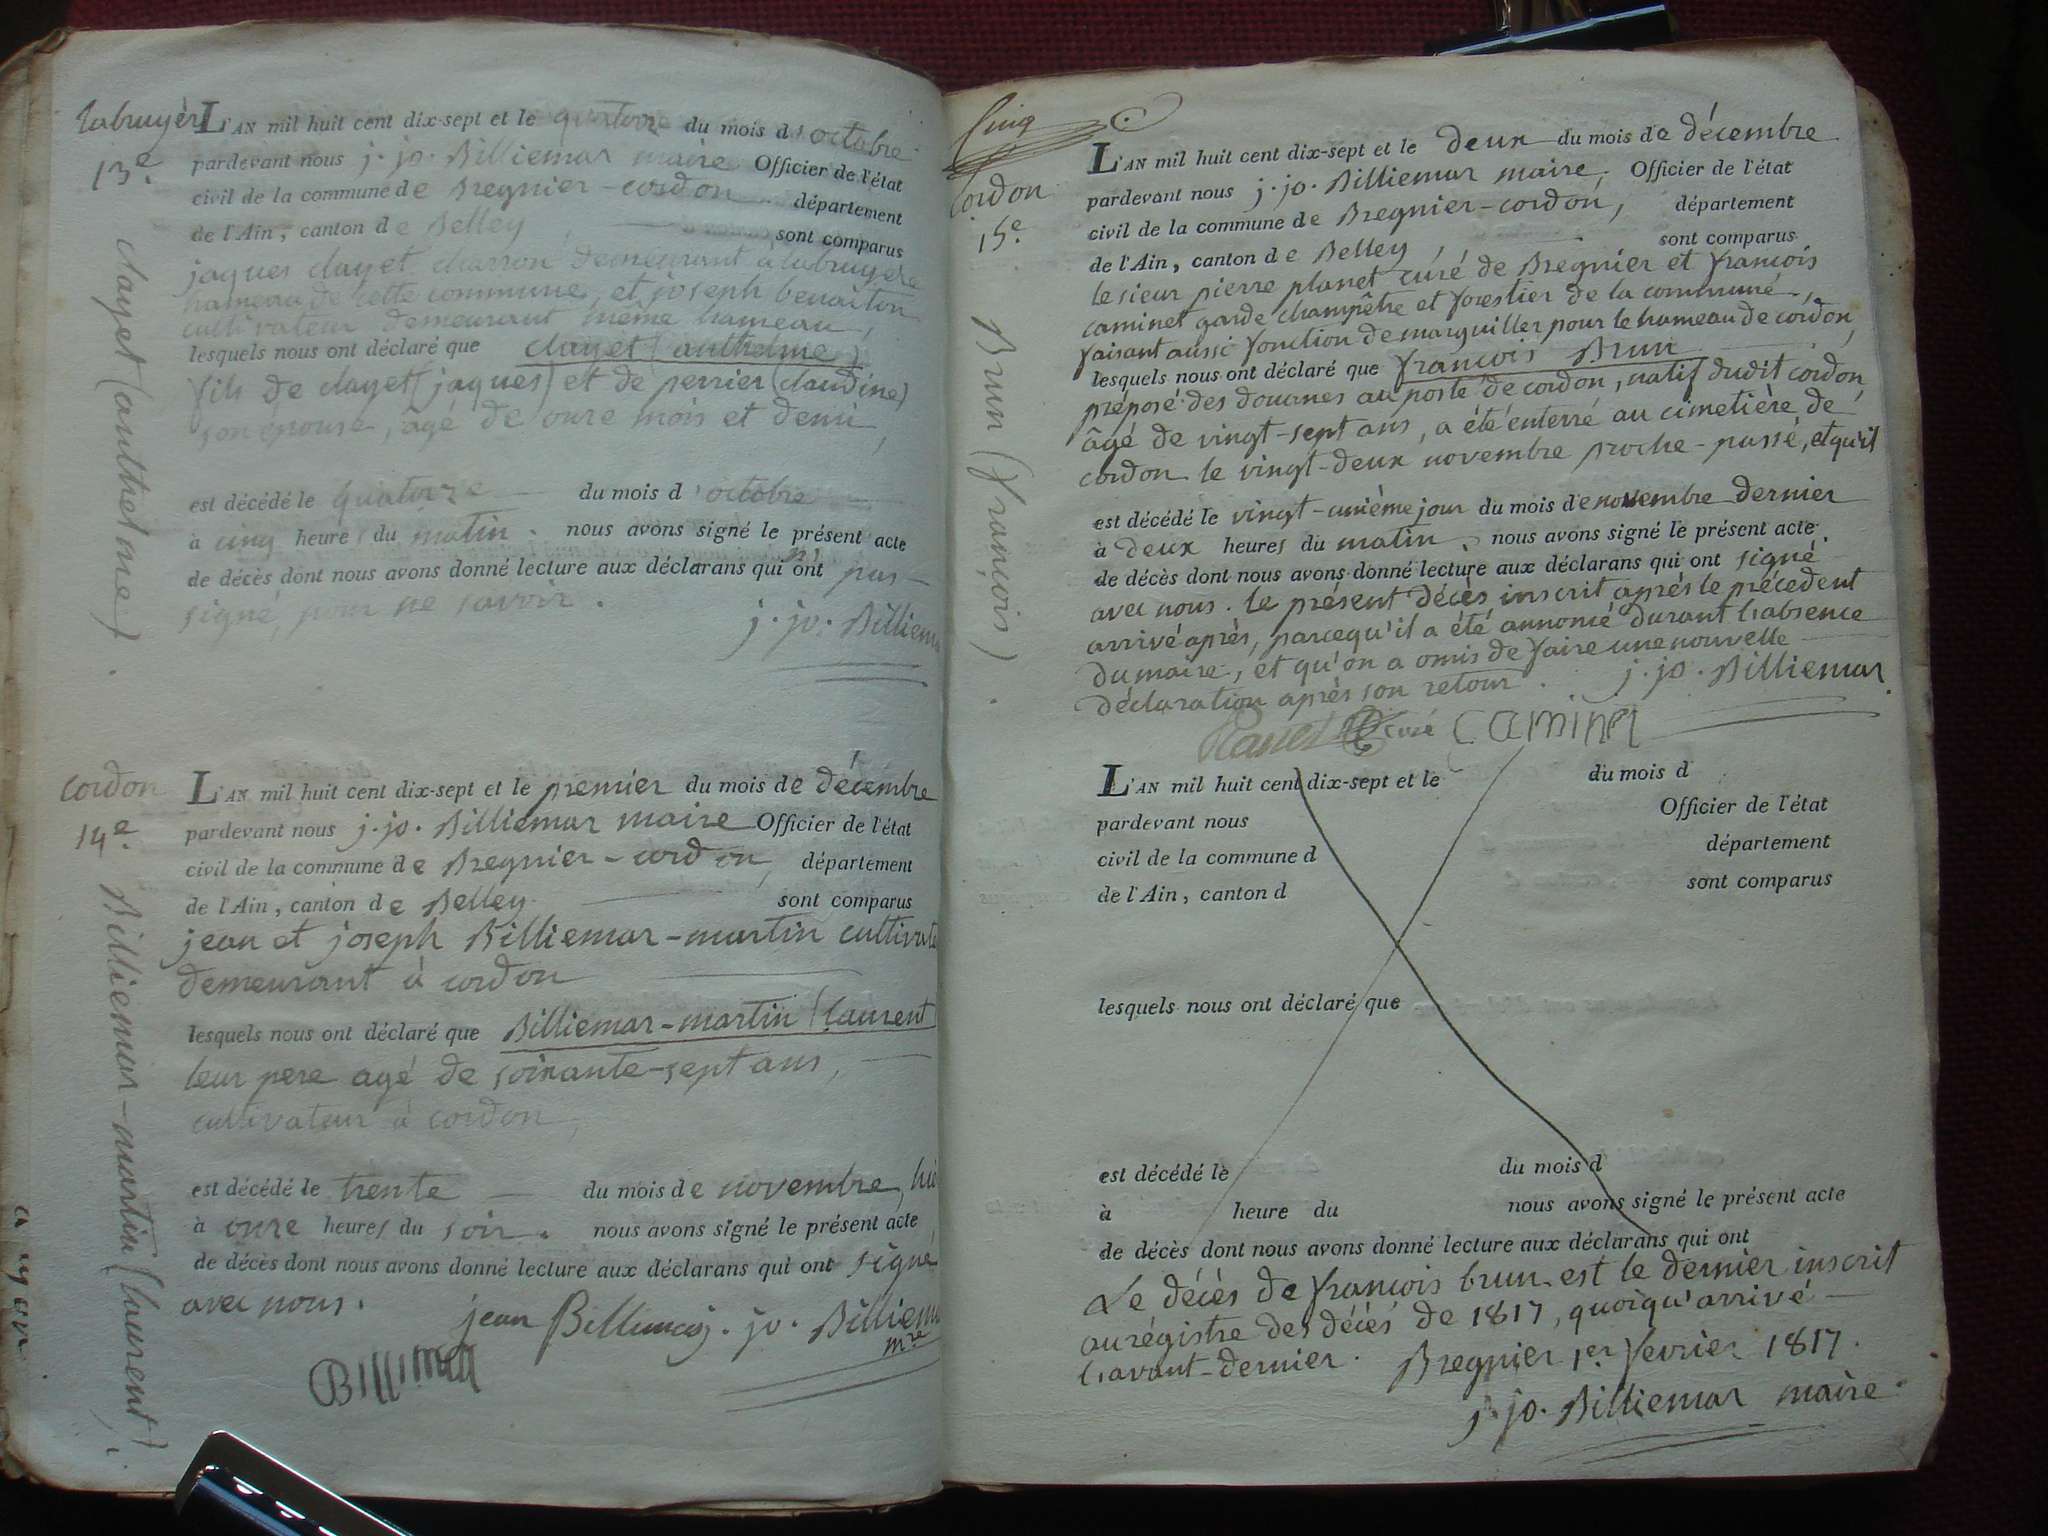 labruyère
13e.
clayet (anthelme).
L'AN mil huit cent dix-sept et le quatorze du mois d'octobre
pardevant nous j. jo. Billiemar maire Officier de l'état
civil de la commune de Bregnier-cordon département
de l'Ain, canton de Belley, sont comparus
jaques clayet charron demeurant a labruyere
hameau de cette commune, et joseph benaiton
cultivateur demeurant même hameau,
lesquels nous ont déclaré que clayet (anthelme)
fils de clayet (jaques) et de perrier (claudine)
son épouse, agé de onze mois et demi,
est décédé le quatorze du mois d'octobre
à cinq heures du matin. nous avons signé le présent acte
de décès dont nous avons donné lecture aux déclarans qui n'ont pas
signé, pour ne savoir.
j. jo. Billiema
cordon
14e.
Billiemar-martin (laurent).
L'AN mil huit cent dix-sept et le premier du mois de décembre
pardevant nous j. jo. Billiemar maire Officier de l'état
civil de la commune de Bregnier-cordon, département
de l'Ain, canton de Belley sont comparus
jean et joseph Billiemar-martin cultivate
demeurant à cordon
lesquels nous ont déclaré que Billiemar-martin (laurent
leur pere agé de soixante-sept ans,
cultivateur à cordon,
est décédé le trente du mois de novembre, hie
à onze heures du soir. nous avons signé le présent acte
de décès dont nous avons donné lecture aux déclarans qui ont signé
avec nous.
jean Billimaz j. jo. Billiema
mre
Billimaz
Cinq
cordon
15e.
Brun (françois).
L'AN mil huit cent dix-sept et le deux du mois de décembre
pardevant nous j. jo. Billiemar maire, Officier de l'état
civil de la commune de Bregnier-cordon, département
de l'Ain, canton de Belley, sont comparus
le sieur pierre planet curé de Bregnier et françois
caminet garde champêtre et forestier de la commune,
faisant aussi fonction de marguiller pour le hameau de cordon,
lesquels nous ont déclaré que françois Brun
préposé des douanes au poste de cordon, natif dudit cordon,
âgé de vingt-sept ans, a été enterré au cimetière de
cordon le vingt-deux novembre proche-passé, et qu'il
est décédé le vingt-unième jour du mois de novembre dernier
à deux heures du matin. nous avons signé le présent acte
de décès dont nous avons donné lecture aux déclarans qui ont signé
avec nous. le présent décès inscrit après le précédent
arrivé après, parcequ'il a été annoncé durant l'absence
du maire, et qu'on a omis de faire une nouvelle
déclaration après son retour. j. jo. Billiemar
Planet curé Caminet
L'AN mil huit cent dix-sept et le du mois d
pardevant nous Officier de l'état
civil de la commune d département
de l'Ain, canton d sont comparus
lesquels nous ont déclaré que
est décédé le du mois d
à heure du nous avons signé le présent acte
de décès dont nous avons donné lecture aux déclarans qui ont
Le décès de françois brun est le dernier inscrit
au régistre des décès de 1817, quoiqu'arrivé
l'avant-dernier. Bregnier 1er février 1817.
j. jo. Billiemar maire